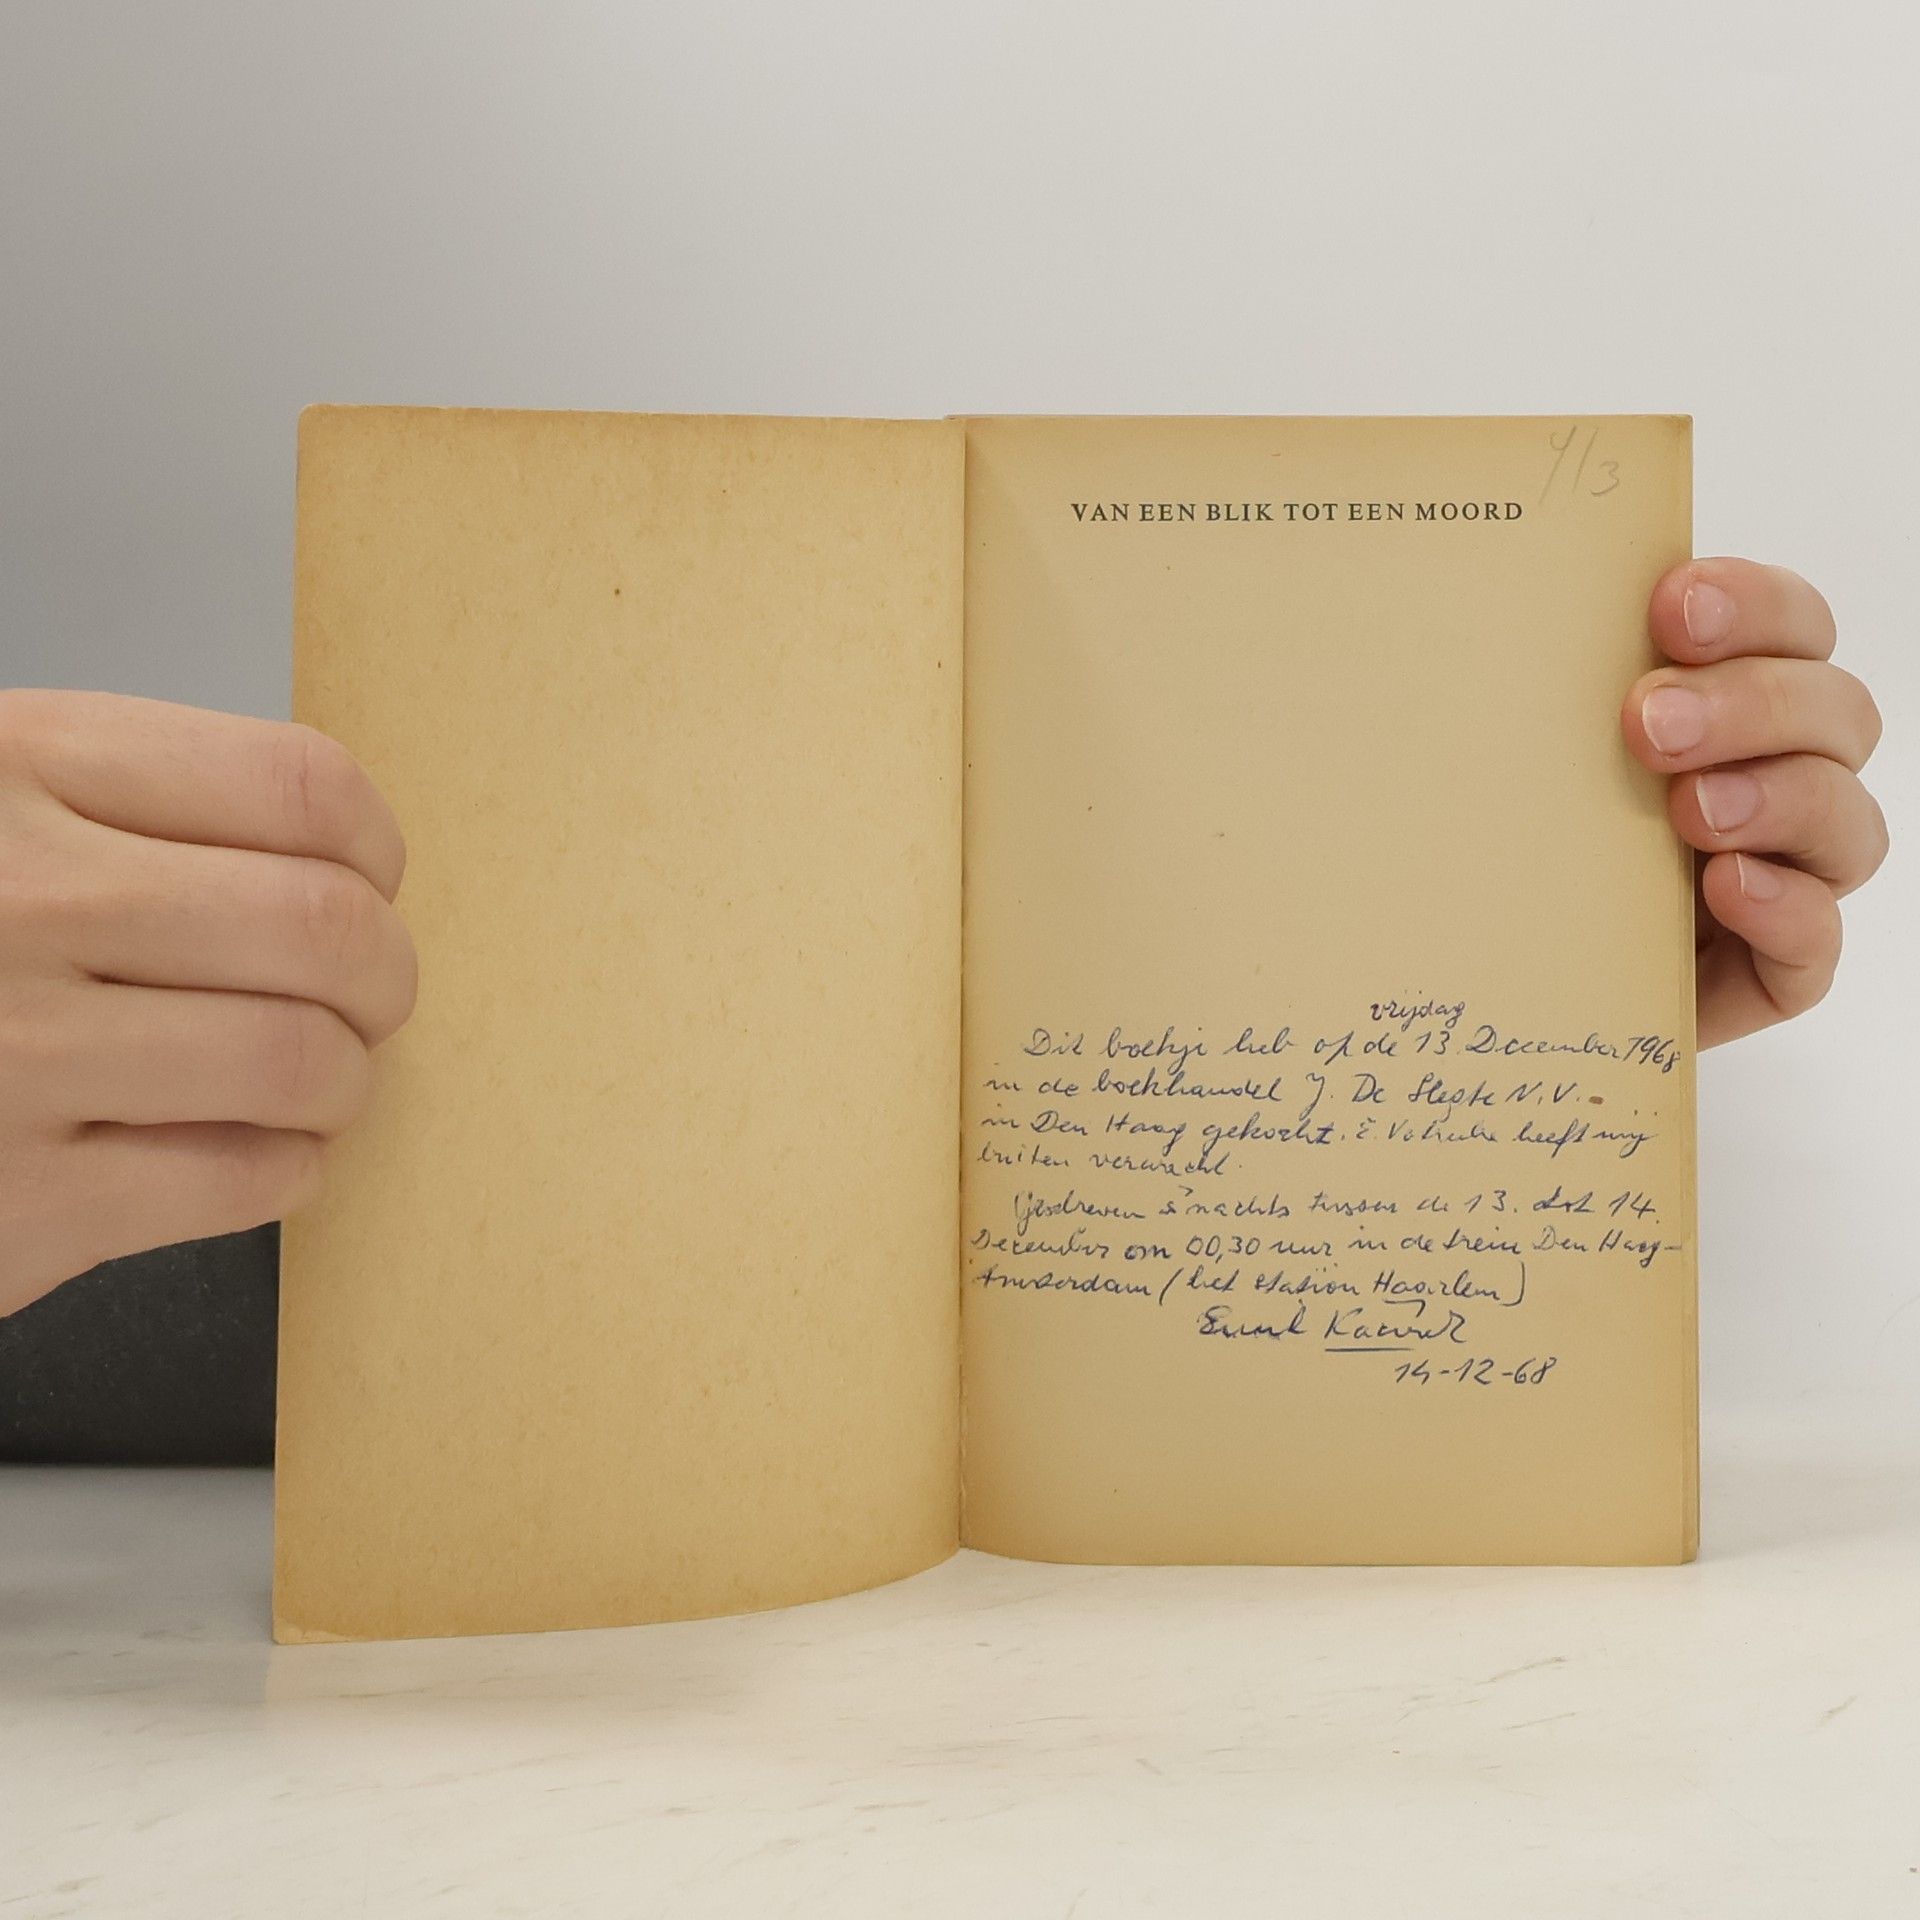 4/3
VAN EEN BLIK TOT EEN MOORD
vrijdag
Dit boekje heb op de 13 December 1968
in de boekhandel J. De Slegte N.V. -
in Den Haag gekocht. heeft mij
buiten verwacht.
Geschreven s'nachts tussen de 13. tot 14.
December om 00,30 uur in de trein Den Haag-
Amsterdam (het station Haarlem)
Emil
14-12-68